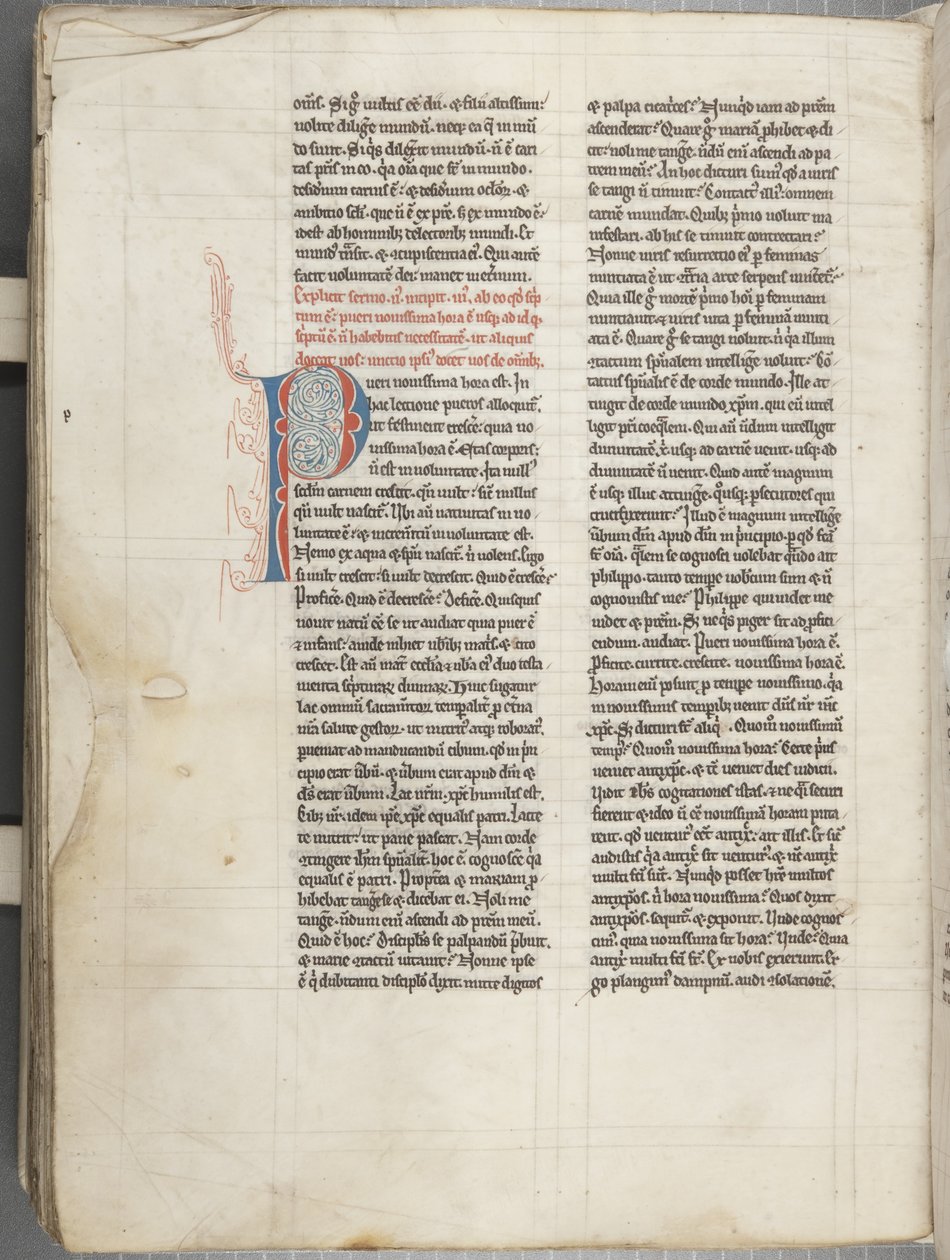 om̄s. Si gͦ uultis eē dii. ⁊ filii altissimi:
nolite diligͤe mundū. neqꝫ ea q̄ in mū
do sunt. Si qͥs dilexit mundū. n̄ ē cari
tas pr̄is in eo. qͥa oīa que sт̄ in mundo.
desid̓ium carnis ē: ⁊ desid̓ium oclōꝝ. ⁊
ambitio scl̄i. que n̄ ē ex pr̄e. sꝫ ex mundo ē.
idest ab hominibꝫ delectoribꝫ mundi. Et
mundꝰ tͣnsit. ⁊ ꝯcupiscentia eiꝰ. Qui autē
facit uoluntatē dei: manet in et̓num.
Explicit sermo .ijꝰ. incipit .iijꝰ. ab eo qd̄ sc̓p
tum ē: pueri nouissima hora ē usqꝫ ad id qd̓
sc̓ptū ē. n̄ habebitis necessitatē. ut aliquis
doceat uos: unctio ipsiꝰ docet uos de om̄ibꝫ.
Pueri nouissima hora est. In
hac lectione pueros alloquit᷑.
ut festinent cresc̓e: quia no
uissima hora ē. Etas corporis:
n̄ est in uoluntate. Ita nullꝰ
scd̄m carnem crescit. qn̄ uult: sic̄ nullus
qn̄ uult nascit᷑. Ubi aū natiuitas in uo
luntate ē: ⁊ increm̄tū in uoluntate est.
Nemo ex aqua ⁊ spū nascit᷑. nͥ uolens. Ergo
si uult crescit: si uult decrescit. Quid ē cresc̓e:
Profic̓e. Quid ē decresc̓e: Defic̓e. Quisquis
nouit natū eē se ut audiat quia puer ē
⁊ infans: auide inhiet ub̓ibꝫ matͥs. ⁊ cito
crescet. Est aū mat̓ eccl̄ia ⁊ ub̓a eiꝰ duo testa
menta sc̓pturaꝝ diuinaꝝ. Hinc sugatur
lac omniū sacram̄toꝝ temporalit̓ ꝓ et̓na
nr̄a salute gestoꝝ. ut nutritꝰ atqꝫ roboratꝰ.
ꝑueniat ad manducandū cibum. qd̄ in pͥn
cipio erat ūbū. ⁊ ūbum erat apud dm̄ ⁊
ds̄ erat ūbum. Lac nr̄m .xp̄c humilis est.
Cibꝫ nr̄. idem ip̄e xp̄c equalis patri. Lacte
te nutrit: ut pane pascat. Nam corde
ꝯtingere ih̄m sp̄ualit̓. hoc ē. cognosc̓e qͥa
equalis ē patri. Propt̓ea ⁊ mariam ꝓ
hibebat tang̓e se ⁊ dicebat ei. Noli me
tang̓e. n̄dum enim ascendi ad pr̄em meū.
Quid ē hoc: Discipl̄is se palpandū p̄buit.
⁊ marie ꝯtactū uitauit: Nonne ipse
ē qͥ dubitanti discipl̄o dixit. mitte digitos
⁊ palpa cicatͥces: Nunqͥd iam ad pr̄em
ascenderat: Quare gͦ mariā ꝓhibet ⁊ di
cit: noli me tang̓e. n̄dū enī ascendi ad pa
trem meū: An hoc dicturi sumꝰ qd̓ a uiris
se tangi n̄ timuit: Contactꝰ illiꝰ: omnem
carnē mundat. Quibꝫ pͥmo uoluit ma
nifestari. ab his se timuit contrectari:
Nonne uiris resurrectio eiꝰ ꝑ feminas
nuntiata ē ut ꝯtͣria arte serpens uincet᷑:
Quia ille gͦ mortē pͥmo hoī ꝑ feminam
nuntiauit. ⁊ uiris uita ꝑ feminā nunti
ata ē. Quare gͦ se tangi noluit. nͥ qͥa illum
ꝯtactum sp̄ualem intellig̓e uoluit: Cō
tactus sp̄ualis ē de corde mundo. Ille at
tingit de corde mundo xp̄m. qui eū intel
ligit pr̄i coeqͣlem. Qui aū n̄dum intelligit
diuinitatē .xͥ. usqꝫ ad carnē uenit. usqꝫ ad
diuinitatē n̄ uenit. Quid autē magnum
ē usqꝫ illuc atting̓e. qͦusqꝫ ꝑsecutores qui
crucifixerunt: Illud ē magnum intellig̓e
ūbum dm̄ apud dm̄ in pͥncipio. ꝑ qd̓ fc̄a
sт̄ oīa. qͣlem se cognosci uolebat qͣndo ait
philippo. tanto tempore uobiscum sum ⁊ n̄
cognouistis me: Philippe qui uidet me
uidet ⁊ pr̄em. Sꝫ ne qͥs piger sit ad ꝓfici
endum. audiat. Pueri nouissima hora ē.
Proficite. currite. crescite. nouissima hora ē.
Horam enī posuit ꝓ tempore nouissimo. qͥa
in nouissimis temporibꝫ uenit dn̄s nr̄ ih̄c
xp̄c. Sꝫ dicturi sт̄ aliqͥ. Quom̊ nouissimū
tempꝰ: Quom̊ nouissima hora: Certe pͥus
ueniet antixp̄c. ⁊ tc̄ ueniet dies iudicii.
Uidit ioh̄s cogitationes istas. ⁊ ne qͣsi securi
fierent ⁊ ideo n̄ eē nouissimā horam puta
rent. qd̓ uenturꝰ eēt antix̓: ait illis. Et sic̄
audistis qͥa antix̓ sit uenturꝰ. ⁊ nc̄ antix̓i
multi fc̄i sūt. Nunqͥd posset hr̄e multos
antix̓pos. nͥ hora nouissima: Quos dixit
antix̓pos. sequit᷑. ⁊ exponit. Unde cognos
cimꝰ. quia nouissima sit hora: Unde: Quia
antix̓i multi fc̄i sт̄. Ex nobis exierunt. Er
go plangimꝰ dampnū. audi ꝯsolationē.
p